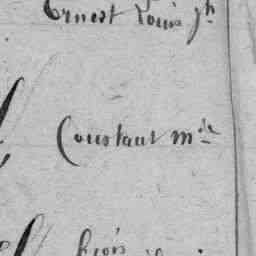 Ernest Louis Jh
Constant mle